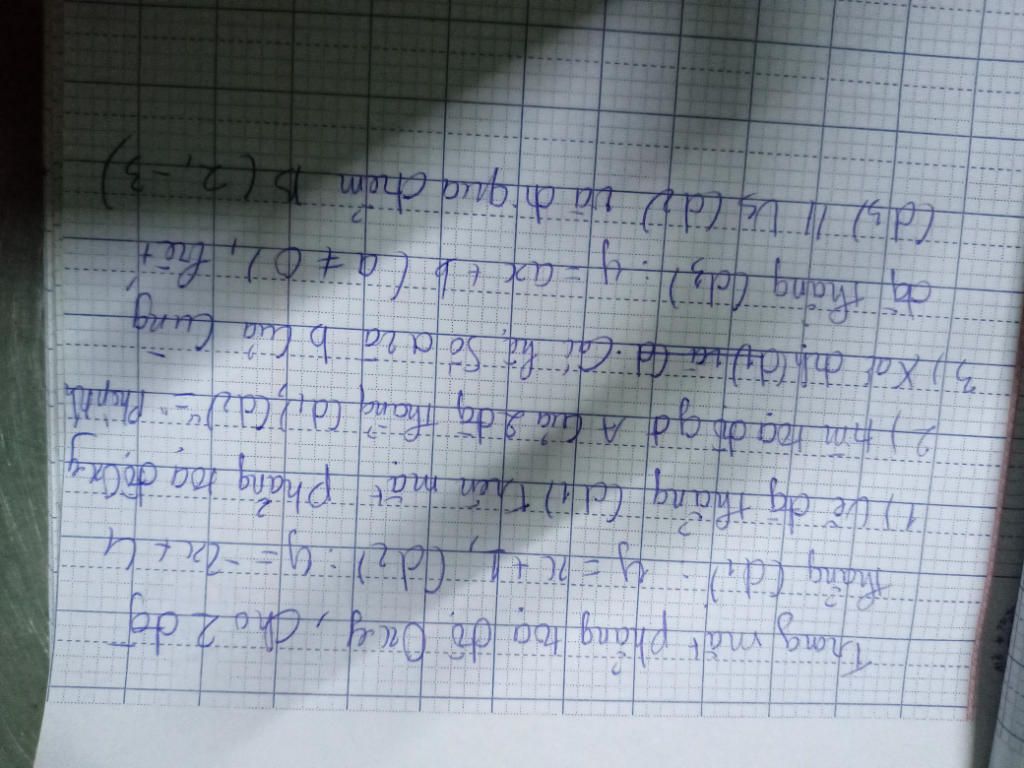 Trong mặt phẳng toạ độ Oxy, cho 2 đg
thẳng (d1) : y = x + 1, (d2) : y = -2x + 4
1) vẽ đg thẳng (d1) trên mặt phẳng toạ độ Oxy
2) tìm toạ độ gđ A của 2 đg thẳng (d1) (d2) = Phép tính
3) Xác định các hệ số a và b của
đg thẳng (d3) : y = ax + b (a ≠ 0), biết
(d3) // vs (d2) và đi qua điểm B (2, -3)